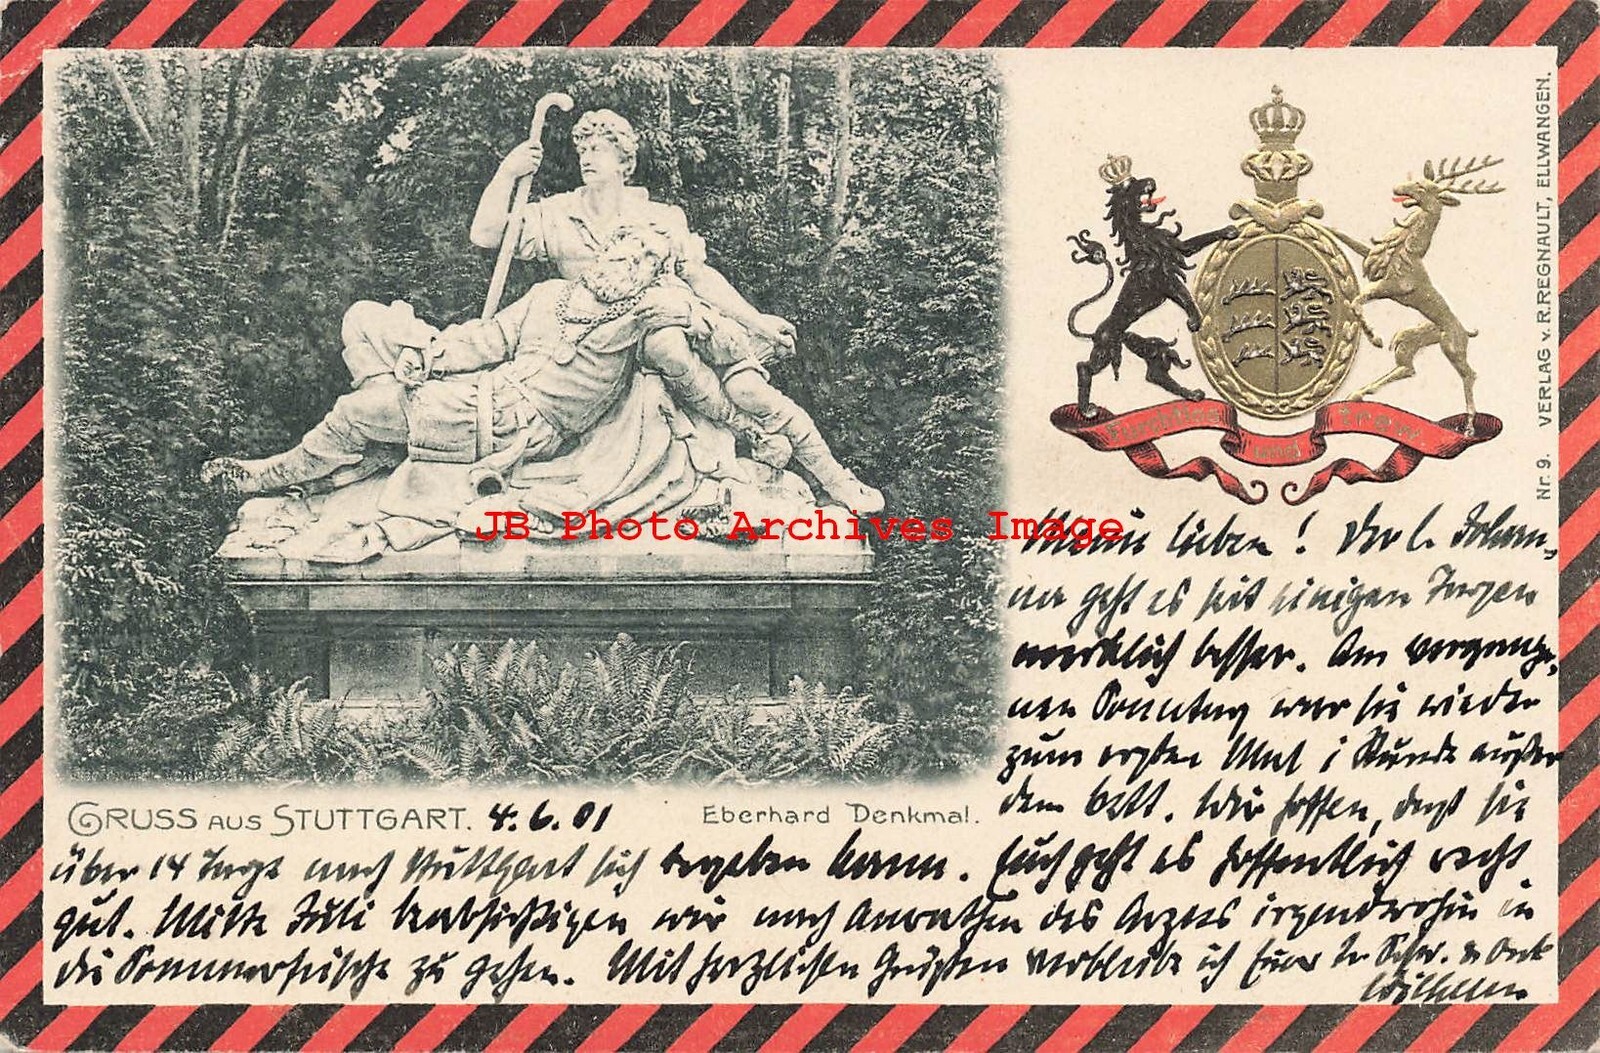 Furchtlos und trew
Nr. 9. VERLAG v. R. REGNAULT, ELLWANGEN.
JB Photo Archives Image
Meine Lieben! Der l. Johan-
na geht es seit einigen Tagen
merklich besser. Am vergange-
nen Sonntag war sie wieder
zum ersten Mal 1 Stunde außer
dem Bett. Wir hoffen, daß sie
GRUSS AUS STUTTGART. 4.6.01
Eberhard Denkmal.
über 14 Tage nach Stuttgart sich begeben kann. Euch geht es hoffentlich recht
gut. Mitte Juli beabsichtigen wir nach Anrathen des Arztes irgendwohin in
die Sommerfrische zu gehen. Mit herzlichen Grüßen verbleibe ich Euer tr. Schw. u. Onk
Wilhelm